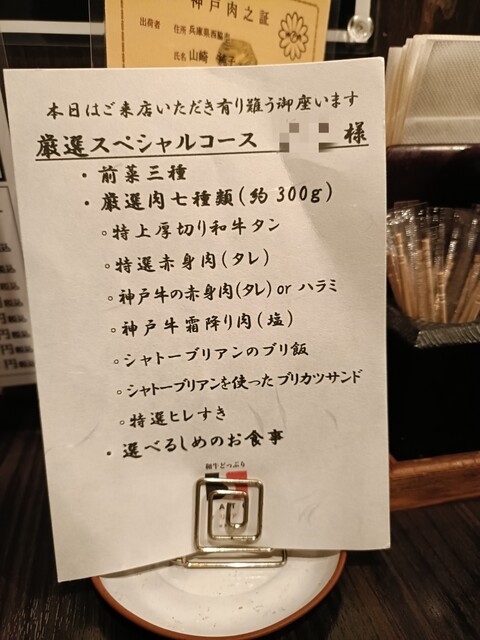 神戸肉之証
出荷者
住所 兵庫県西脇市
氏名 山崎
本日はご来店いただき有り難う御座います
厳選スペシャルコース 様
・前菜三種
・厳選肉七種類(約300g)
◦特上厚切り和牛タン
◦特選赤身肉(タレ)
◦神戸牛の赤身肉(タレ)or ハラミ
◦神戸牛霜降り肉(塩)
◦シャトーブリアンのブリ飯
◦シャトーブリアンを使ったブリカツサンド
◦特選ヒレすき
・選べるしめのお食事
和牛どっぷり